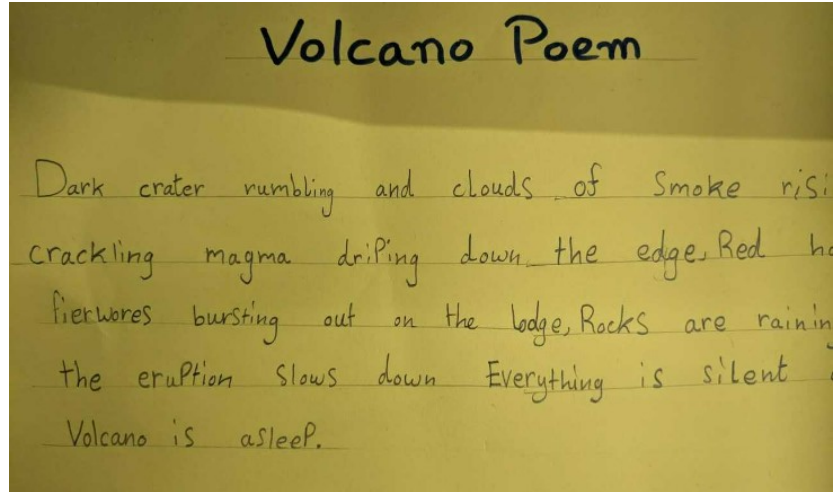 Volcano Poem
Dark crater rumbling and clouds of Smoke risi
crackling magma driPing down the edge, Red ho
fierwores bursting out on the lodge, Rocks are raining
the eruPtion Slows down Everything is silent
Volcano is asleeP.